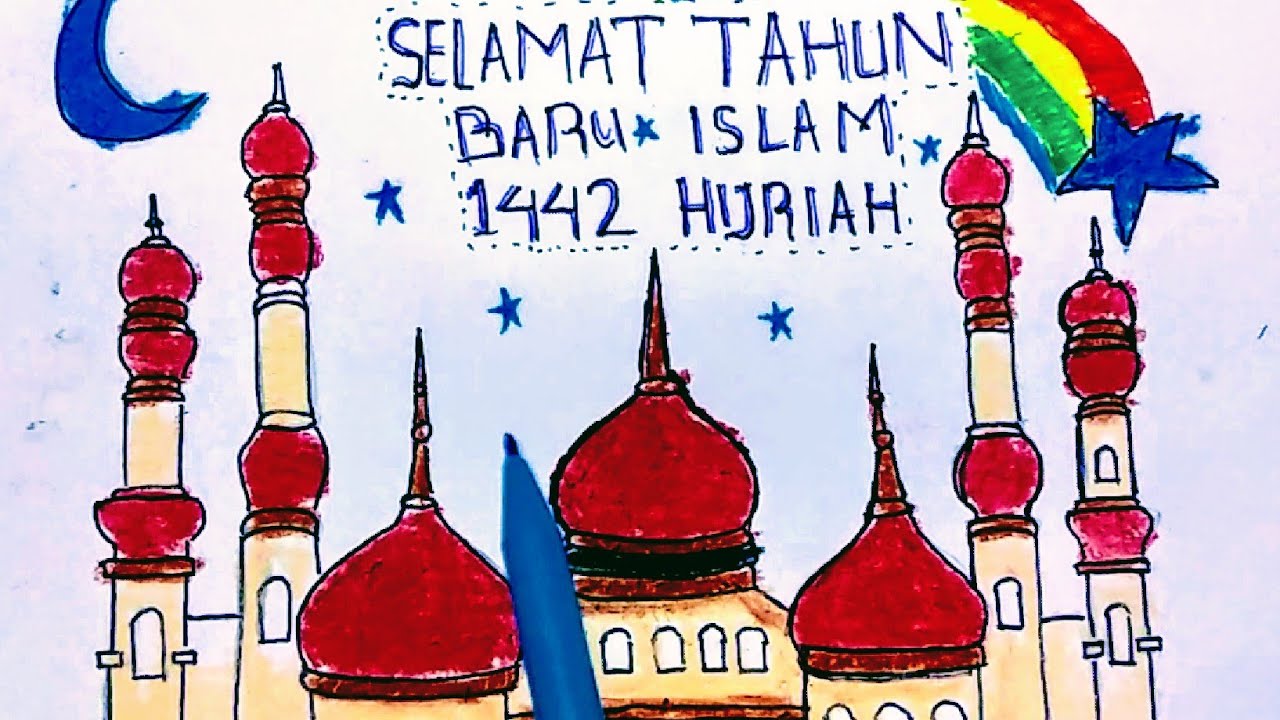 SELAMAT TAHUN
BARU ISLAM
1442 HIJRIAH